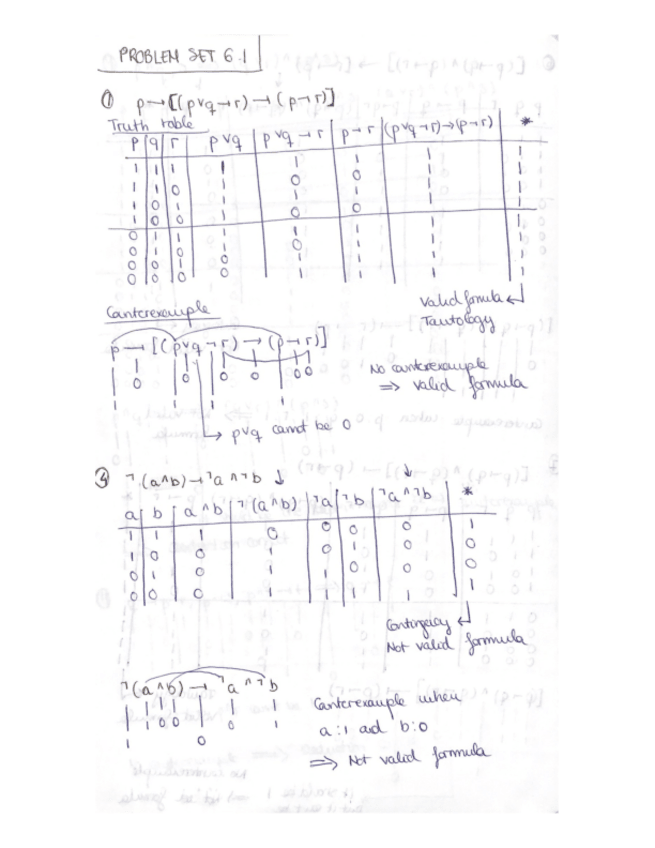 PROBLEM SET 6.1
① p → [(p∨q → r) → (p → r)]
Truth table
p | q | r | p∨q | p∨q → r | p → r | (p∨q → r) → (p → r) | *
1 1 1 1 1 1 1 1
1 1 0 1 0 0 1 1
1 0 1 1 1 1 1 1
1 0 0 1 0 0 1 1
0 1 1 1 1 1 1 1
0 1 0 1 0 1 1 1
0 0 1 0 1 1 1 1
0 0 0 0 1 1 1 1
Valid formula
Tautology
Canterexample
p → [(p∨q → r) → (p → r)]
No canterexample
⇒ valid formula
p∨q cannot be 0
③ ¬(a∧b) → ¬a ∧ ¬b
a | b | a∧b | ¬(a∧b) | ¬a | ¬b | ¬a ∧ ¬b | *
1 1 1 0 0 0 0 1
1 0 0 1 0 1 0 0
0 1 0 1 1 0 0 0
0 0 0 1 1 1 1 1
Contingency
Not valid formula
¬(a∧b) → ¬a ∧ ¬b
Canterexample when
a:1 and b:0
⇒ Not valid formula